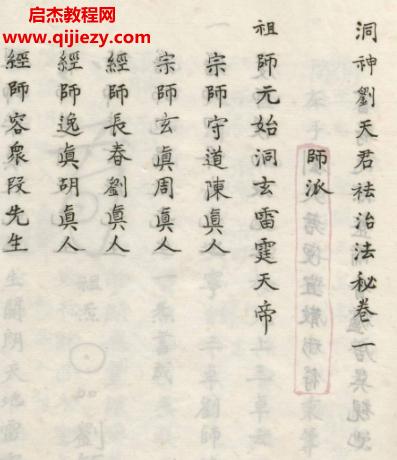 启杰教程网
www.qijiezy.com
洞神劉天君祛治法秘卷一
師派
祖師元始洞玄雷霆天帝
宗師守道陳真人
宗師玄真周真人
經師長春劉真人
經師逸真胡真人
經師容衆段先生